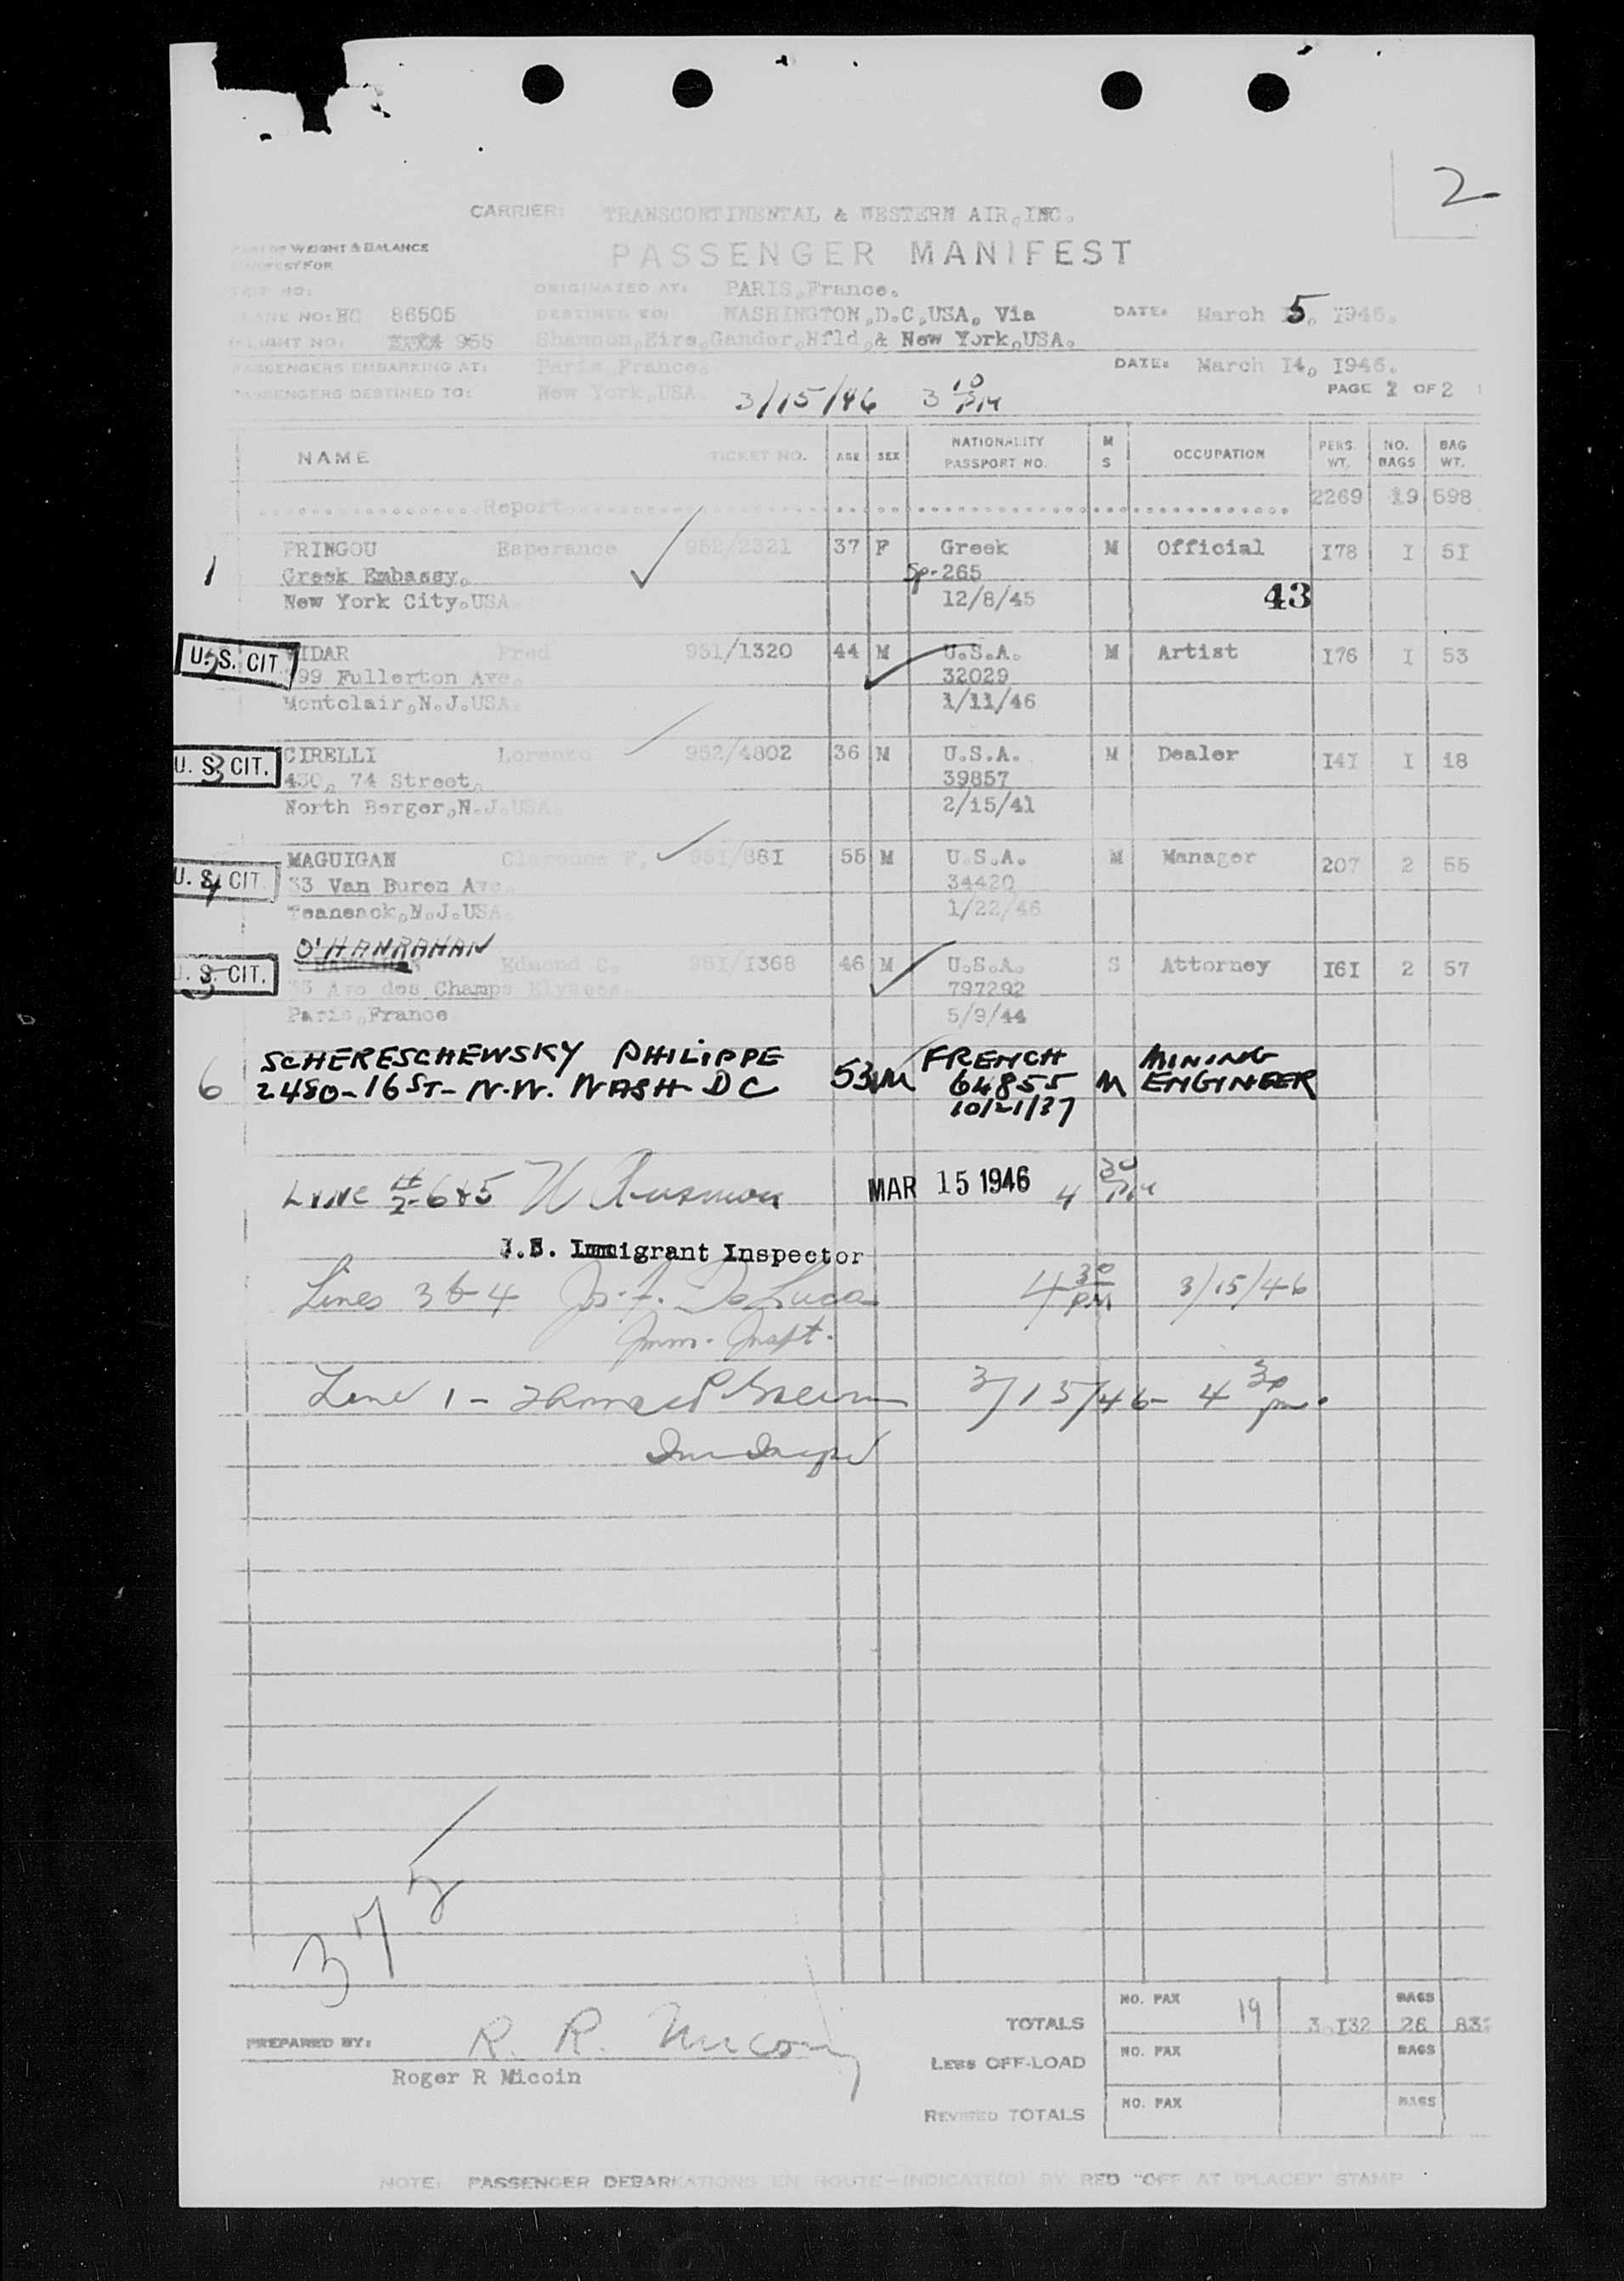 2
CARRIER: TRANSCONTINENTAL & WESTERN AIR, INC.
PART OF WEIGHT & BALANCE
MANIFEST FOR
PASSENGER MANIFEST
TRIP NO:
ORIGINATED AT: PARIS, France.
PLANE NO: NC 86505 DESTINED TO: WASHINGTON, D.C, USA, Via DATE: March 5, 1946.
FLIGHT NO. 955 Shannon, Eire, Gander, Nfld, & New York, USA.
PASSENGERS EMBARKING AT: Paris France. DATE: March I4, I946.
PASSENGERS DESTINED TO: New York, USA. 3/15/46 3 10 PM PAGE 2 OF 2
NAME TICKET NO. AGE SEX NATIONALITY PASSPORT NO. M S OCCUPATION PERS. WT. NO. BAGS BAG WT.
Report 2269 19 598
1 FRINGOU Esperance 952/2321 37 F Greek M Official I78 I 5I
Greek Embassy. Sp-265
New York City, USA 12/8/45 43
U.S. CIT. 2 VIDAR Fred 951/1320 44 M U.S.A. M Artist I76 I 53
99 Fullerton Ave. 32029
Montclair, N.J. USA. 1/11/46
U.S. CIT. 3 CIRELLI Lorenzo 952/4802 36 M U.S.A. M Dealer I4I I 18
430, 74 Street, 39857
North Berger, N.J. USA. 2/15/41
U.S. CIT. 4 MAGUIGAN Clarence F. 95I/88I 55 M U.S.A. M Manager 207 2 55
33 Van Buren Ave. 34420
Teaneack, N.J. USA. 1/22/46
O'HANRAHAN
U.S. CIT. 5 Edmond C. 95I/I368 46 M U.S.A. S Attorney I6I 2 57
33 Ave des Champs Elysees. 797292
Paris, France 5/9/44
6 SCHERESCHEWSKY PHILIPPE 53 M FRENCH M MINING
2480-16 ST- N.W. WASH DC 64855 ENGINEER
10/21/37
LINE # 2-6&5 MAR 15 1946 4 30 PM
Immigrant Inspector
Lines 3 & 4 Jos. A. DeLuca 4 30 PM 3/15/46
Imm. Inspt.
Line 1 - 3/15/46- 4 30 pm.
372
PREPARED BY: R. R. Micoin
Roger R Micoin
TOTALS NO. PAX 19 3.I32 BAGS 26 832
LESS OFF-LOAD NO. PAX BAGS
REVISED TOTALS NO. PAX BAGS
NOTE: PASSENGER DEBARKATIONS EN ROUTE—INDICATE(D) BY RED "OFF AT (PLACE)" STAMP